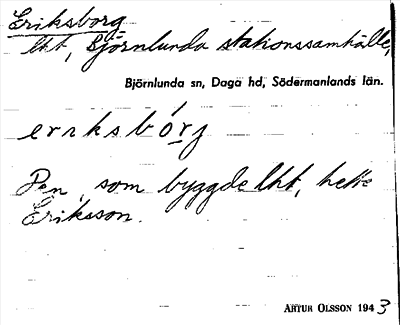 Eriksborg
lht, Björnlunda stationssamhälle,
Björnlunda sn, Daga hd, Södermanlands län.
eriksbórg
Den, som byggde lht, hette
Eriksson.
ARTUR OLSSON 1943